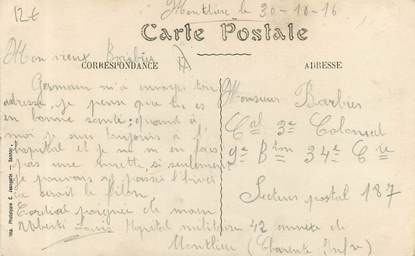 12€
Montlieu le 30-10-16
Carte Postale
Mon vieux Barbier
CORRESPONDANCE
ADRESSE
Germain m'a envoyé ton
adresse, je pense que tu es
en bonne santé; quand à
moi je suis toujours à l'
hopital et je ne m'en fais
pas une miette, si seulement
je pouvais y passer l'hiver
ce serait le filon.
Cordial poignée de main
Louis Hopital militaire 42 annexe de
Montlieu (Charente Infre)
Monsieur Barbier
Cal 3e Colonial
9e Bton 34e Cie
Secteur postal 187
Imp. Phototypie